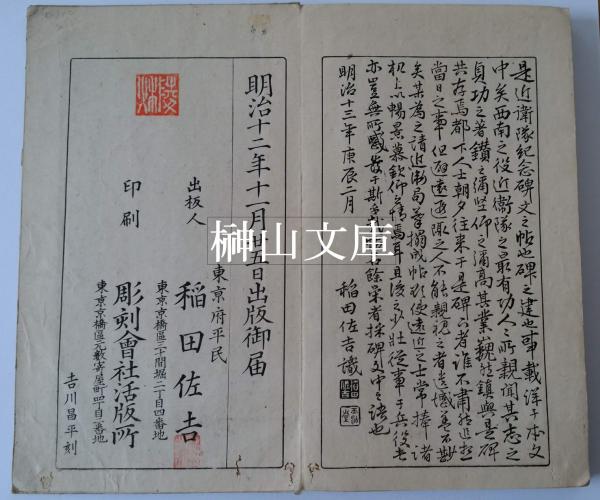 是近衛隊紀念碑文之帖也碑之建也事載詳于本文
中矣西南之役近衛隊之最有功人之所親聞其忠之
貞功之著鑽之彌堅仰之彌高其業巍然鎮與是碑
共存焉都下人士朝夕往来于是碑下者誰不肅然追想
當日之事但恐遠遐陬之人不能親視之者遺憾
矣某為之請近衛局摹搨成帖欲使遠近之士常捧諸
机上以暢景慕欽仰之情焉耳且後之少壮従事于兵役者
亦豈無所感發于斯乎 餘栄者採碑文中之語也
明治十三年庚辰二月 稲田佐吉識
明治十二年十一月廿五日出版御届
東京府平民
出板人 稲田佐吉
東京京橋區三十間堀二丁目四番地
印刷 彫刻會社活版所
東京京橋區元數寄屋町四丁目二番地
吉川昌平刻
榊山文庫